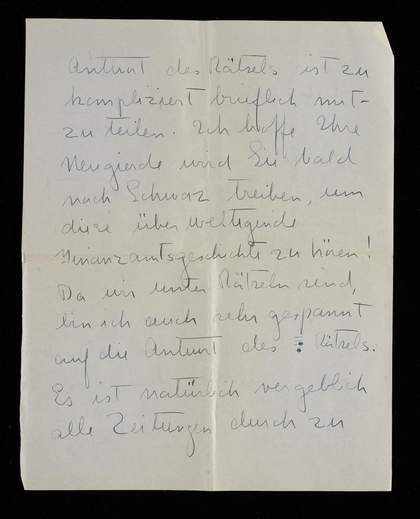 Antwort des Rätsels ist zu
kompliziert brieflich mit-
zu teilen. Ich hoffe Ihre
Neugierde wird Sie bald
nach Schwaz treiben, um
diese überwältigende
Finanzamtsgeschichte zu hören!
Da wir unter Rätseln sind,
bin ich auch sehr gespannt
auf die Antwort des Rätsels.
Es ist natürlich vergeblich
alle Zeitungen durch zu